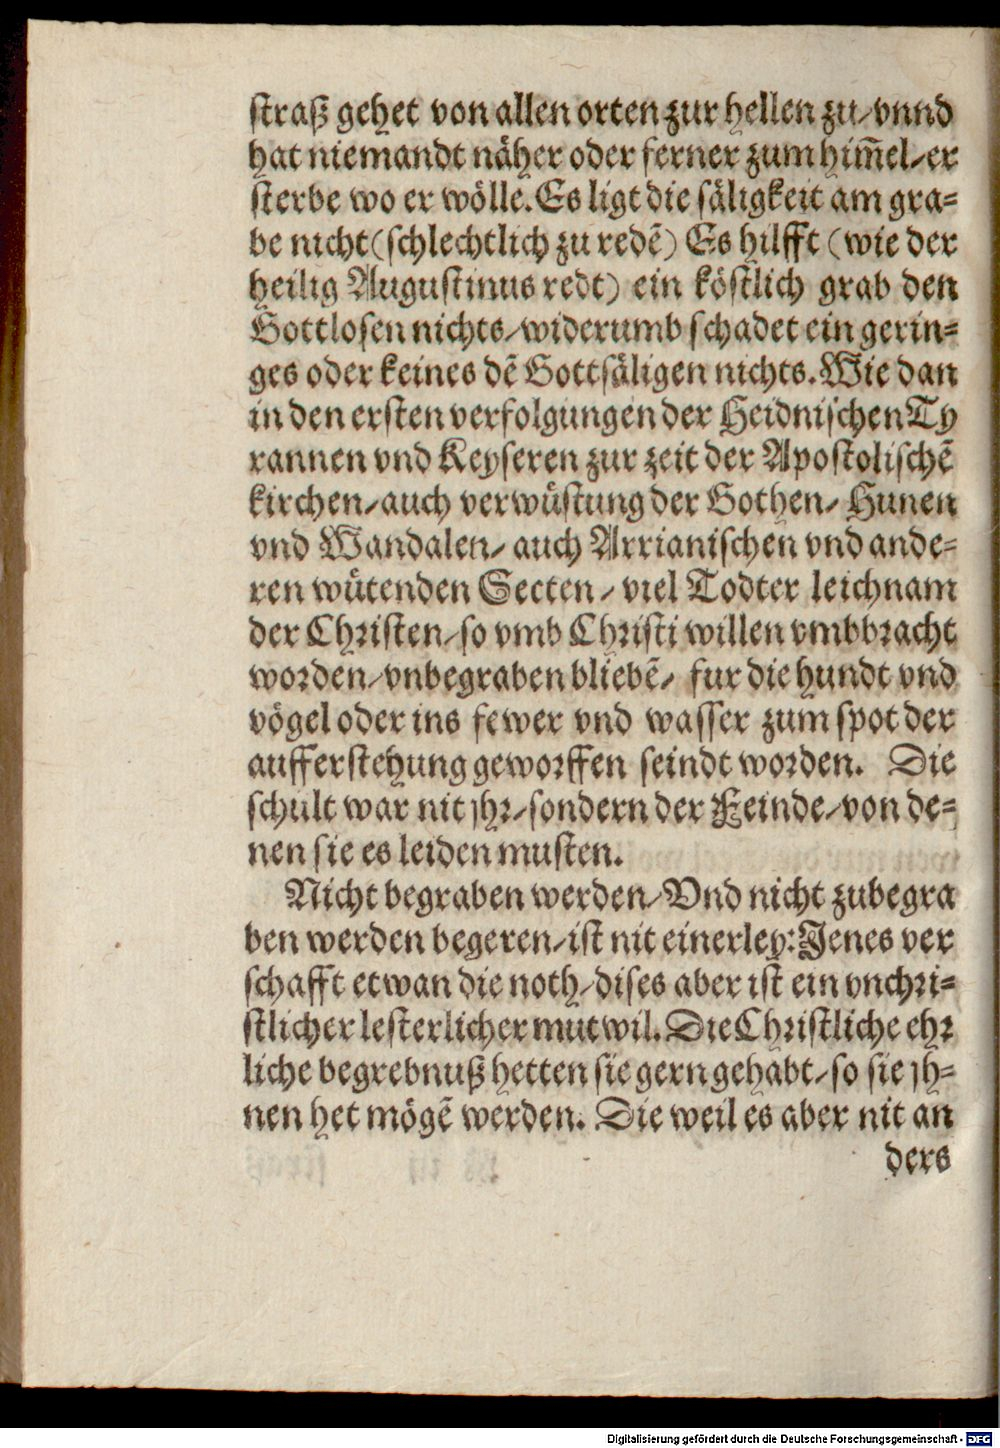 straß gehet von allen orten zur hellen zu/vnnd
hat niemandt näher oder ferner zum him̃el/er
sterbe wo er wölle. Es ligt die säligkeit am gra=
be nicht (schlechtlich zu redẽ) Es hilfft (wie der
heilig Augustinus redt) ein köstlich grab den
Gottlosen nichts/widerumb schadet ein gerin=
ges oder keines dẽ Gottsäligen nichts. Wie dan
in den ersten verfolgungen der Heidnischen Ty
rannen vnd Keyseren zur zeit der Apostolischẽ
kirchen/auch verwüstung der Gothen/ Hunen
vnd Wandalen/ auch Arrianischen vnd ande=
ren wütenden Secten/ viel Todter leichnam
der Christen/so vmb Christi willen vmbbracht
worden/vnbegraben bliebẽ/ fur die hundt vnd
vögel oder ins fewer vnd wasser zum spot der
aufferstehung geworffen seindt worden. Die
schult war nit jhr/sondern der Feinde/von de=
nen sie es leiden musten.
Nicht begraben werden/Vnd nicht zubegra
ben werden begeren/ist nit einerley: Jenes ver
schafft etwan die noth/dises aber ist ein vnchri=
stlicher lesterlicher mutwil. Die Christliche ehr
liche begrebnuß hetten sie gern gehabt/so sie jh=
nen het mögẽ werden. Die weil es aber nit an
ders
Digitalisierung gefördert durch die Deutsche Forschungsgemeinschaft - DFG